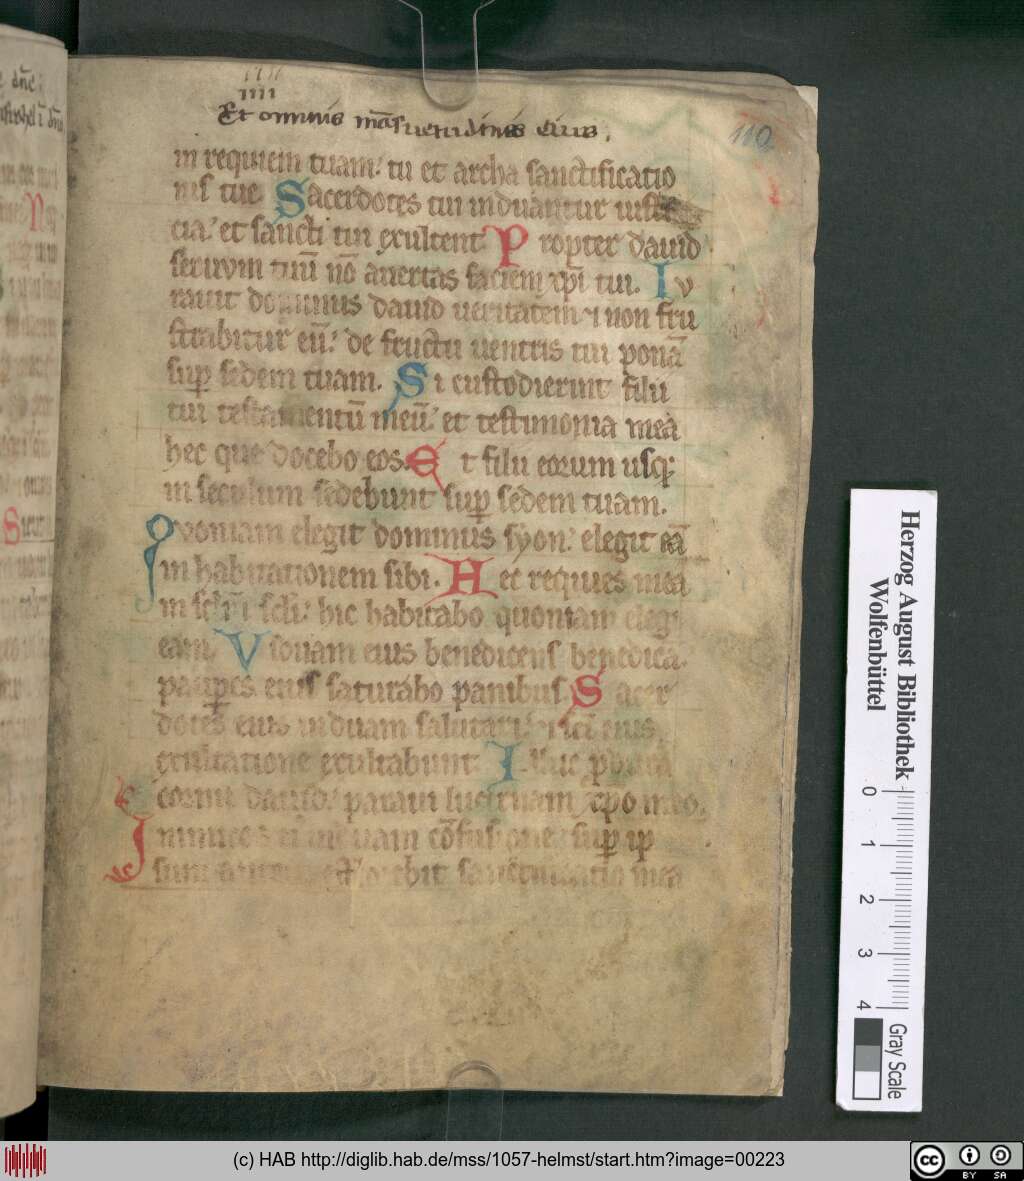 dn̄e
IIII
Et omnis māsuetudinis eius.
110
in requiem tuam: tu et archa sanctificatio
nis tue. Sacerdotes tui induantur iusti
cia: et sancti tui exultent. Propter dauid
seruum tuū nō auertas faciem xp̄i tui. Iu
rauit dominus dauid ueritatem ⁊ non fru
strabitur eū: de fructu uentris tui ponā
sup sedem tuam. Si custodierint filii
tui testamentū meū: et testimonia mea
hec que docebo eos. Et filii eorum usq;
in seculum sedebunt sup sedem tuam.
Quoniam elegit dominus syon: elegit eā
in habitationem sibi. Hec requies mea
in sc̄lm̄ sc̄li: hic habitabo quoniam elegi
eam. Viduam eius benedicens benedicā:
paupes eius saturabo panibus. Sacer
dotes eius induam salutari: ⁊ sc̄i eius
exultatione exultabunt. Illuc p̄ducā
cornu dauid: paraui lucernam xp̄o meo.
Inimicos ei induam cōfusione: sup ip
sum autem efflorebit sanctificatio mea
Herzog August Bibliothek
Wolfenbüttel
0 1 2 3 4
Gray Scale
(c) HAB http://diglib.hab.de/mss/1057-helmst/start.htm?image=00223
cc BY SA